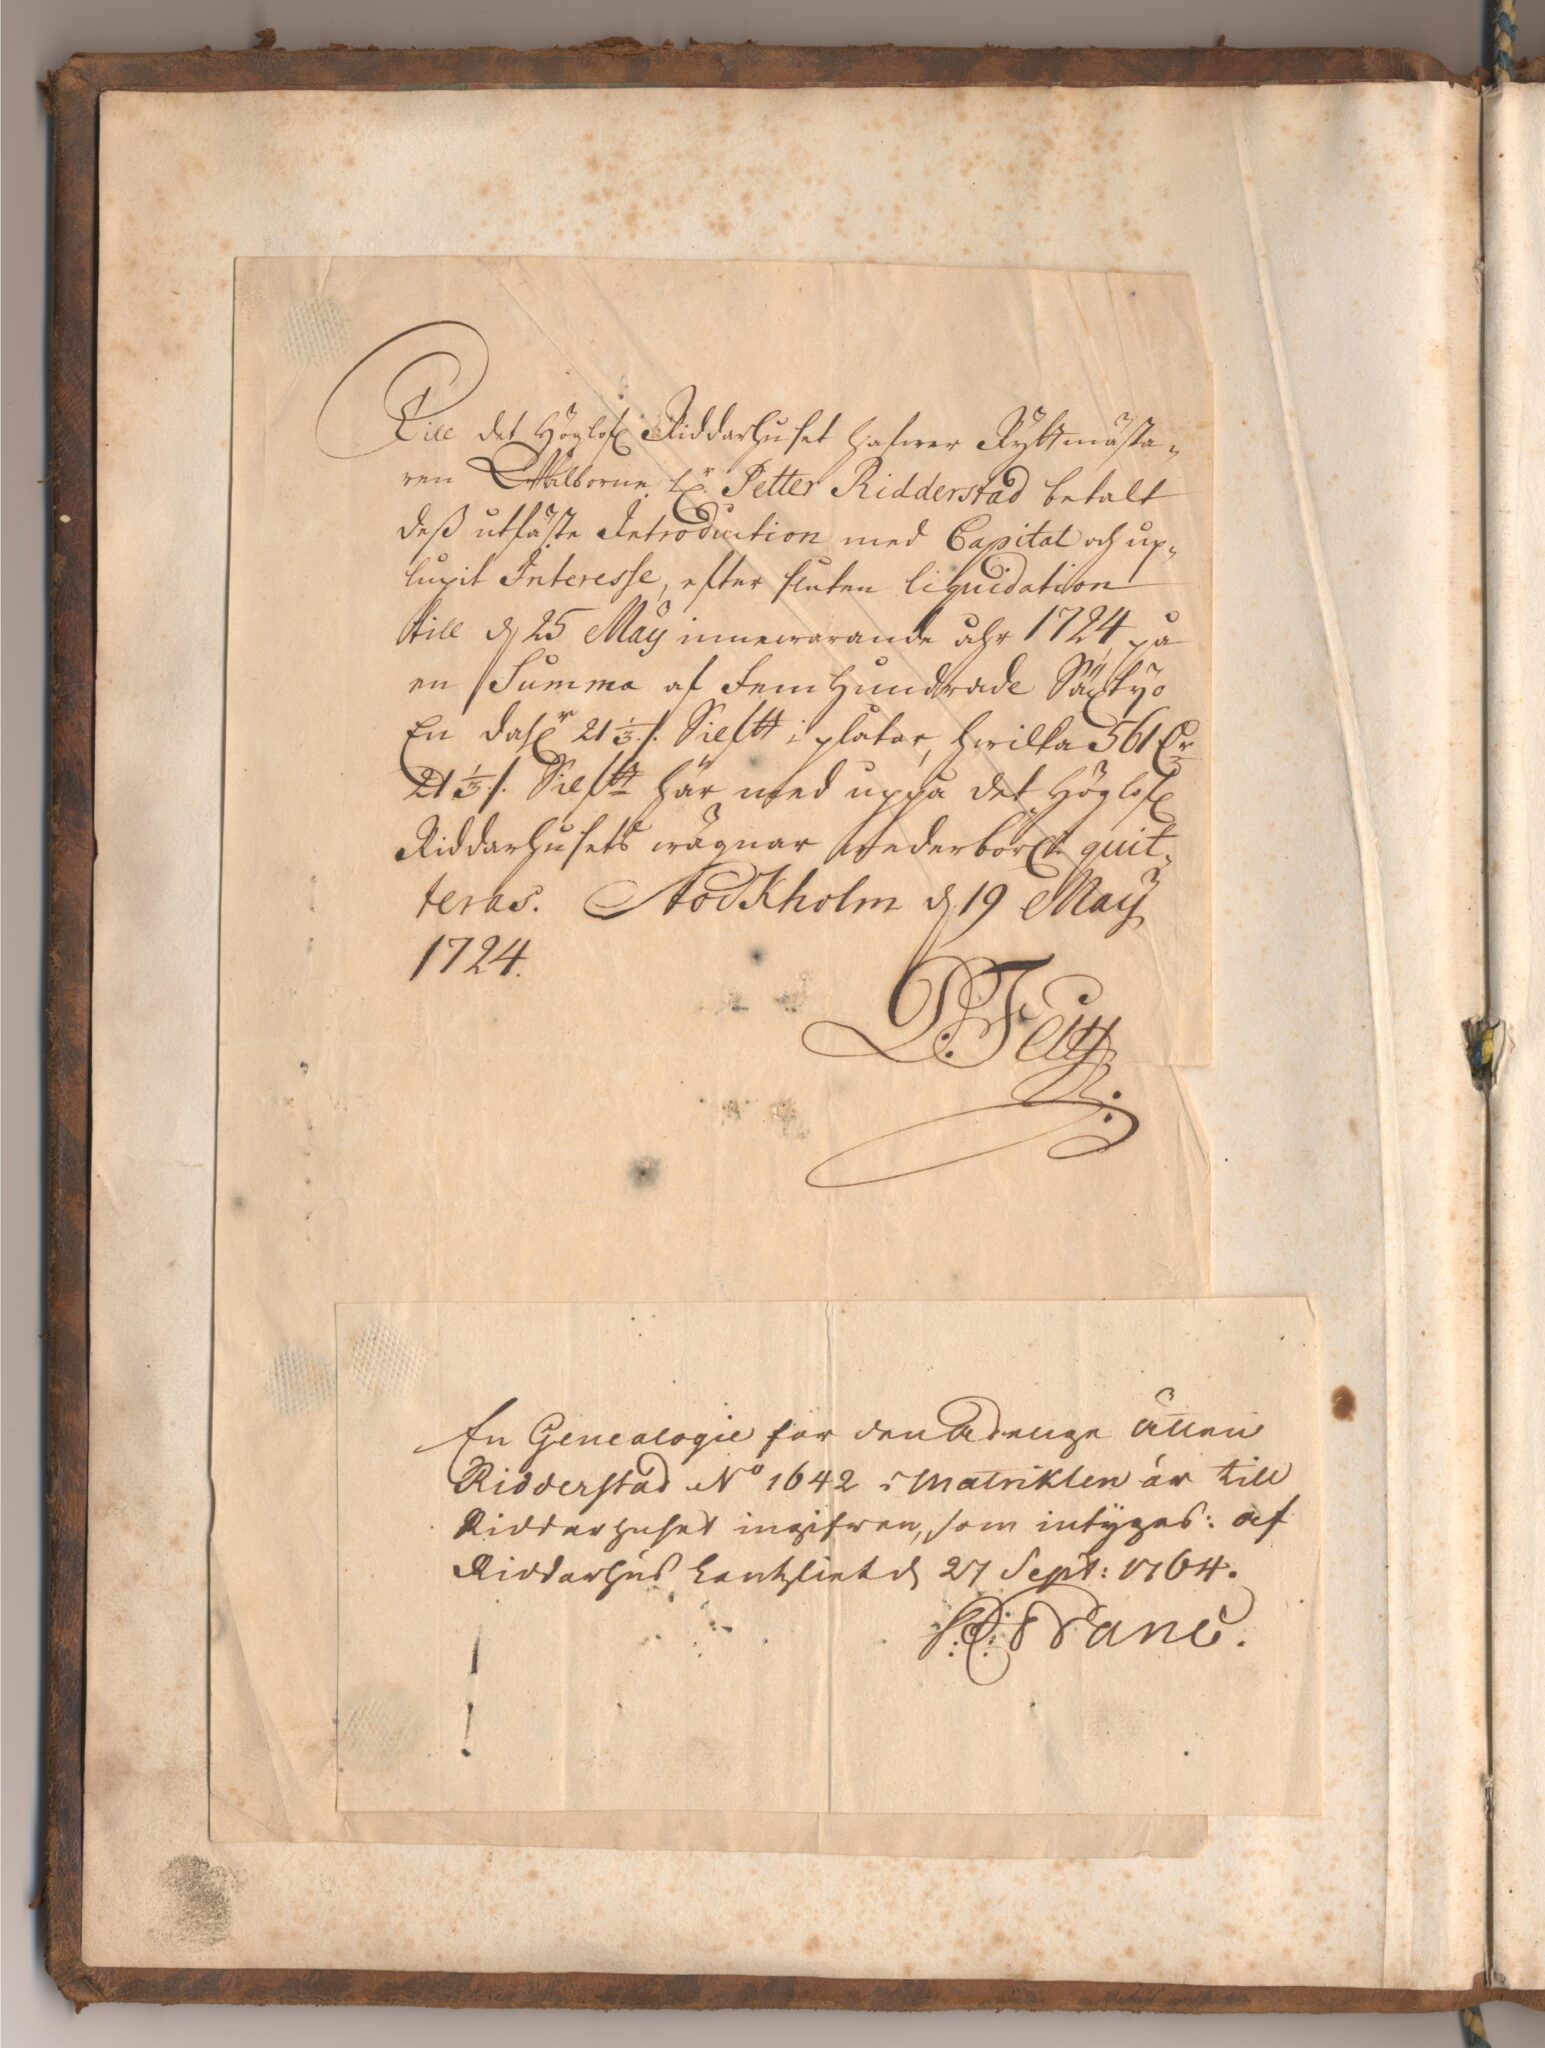 Till det Höglofl Riddarhuset hafwer Ryttmästa=
ren Wälborne Hr Petter Ridderstad betalt
deß utfäste Introduction med Capital och up=
lupit Interesse, efter sluten liquidation
till d, 25 Maÿ innewarande åhr 1724, på
en Summa af Femhundrade Säxtÿo
En dalr 21 1/3 /. Silfmt i plåtar, hwilka 561 Dr
21 1/3 /. Silfmt här med uppå det Höglofl
Riddarhusets wägnar wederbörl quit=
teras. Stockholm d, 19 Maÿ
1724.
En Genealogie för den Adelige Ätten
Ridderstad No 1642 i Matriklen är till
Riddarhuset ingifwen, som intÿgas: af
Riddarhus Cantzliet d, 27 Sept: 1764.